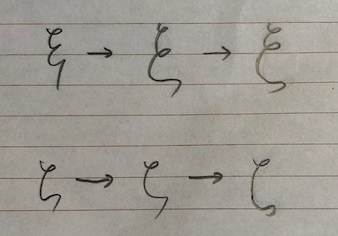 ξ → ξ → ξ
ζ → ζ → ζ